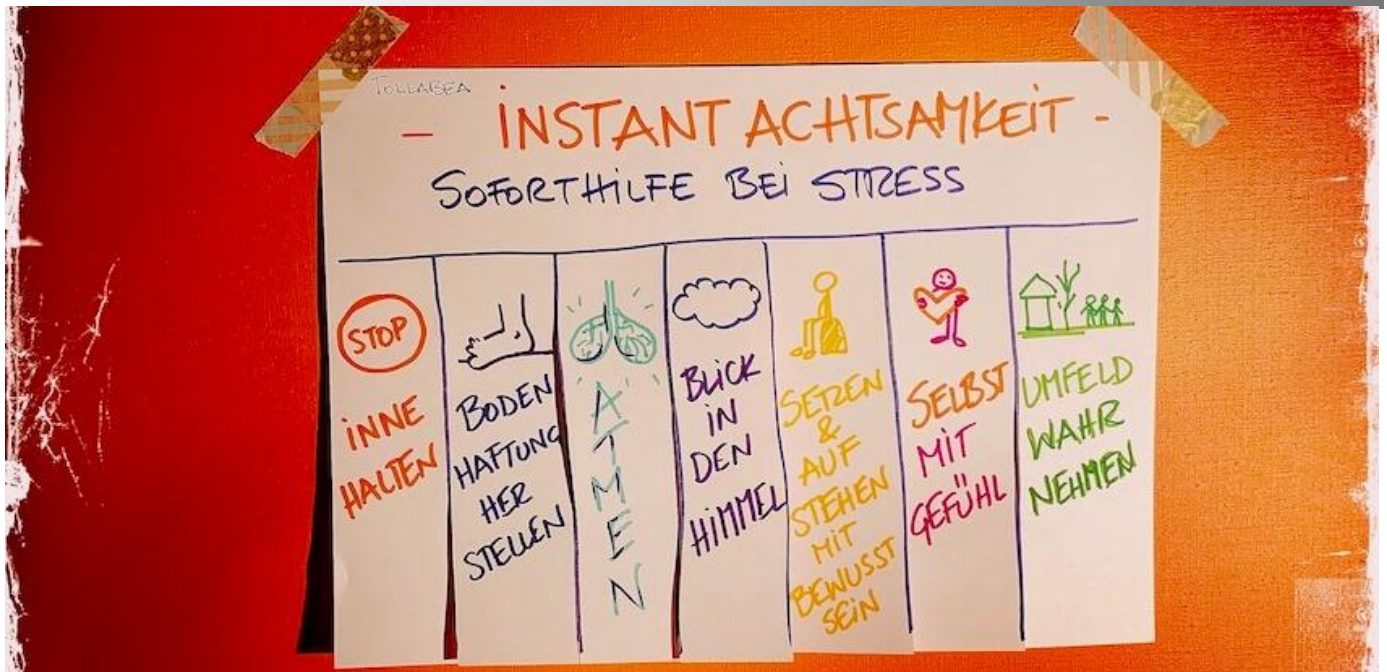 TOLLABEA
- INSTANT ACHTSAMKEIT -
SOFORTHILFE BEI STRESS
STOP
INNE
HALTEN
BODEN
HAFTUNG
HER
STELLEN
ATMEN
BLICK
IN
DEN
HIMMEL
SETZEN
&
AUF
STEHEN
MIT
BEWUSST
SEIN
SELBST
MIT
GEFÜHL
UMFELD
WAHR
NEHMEN